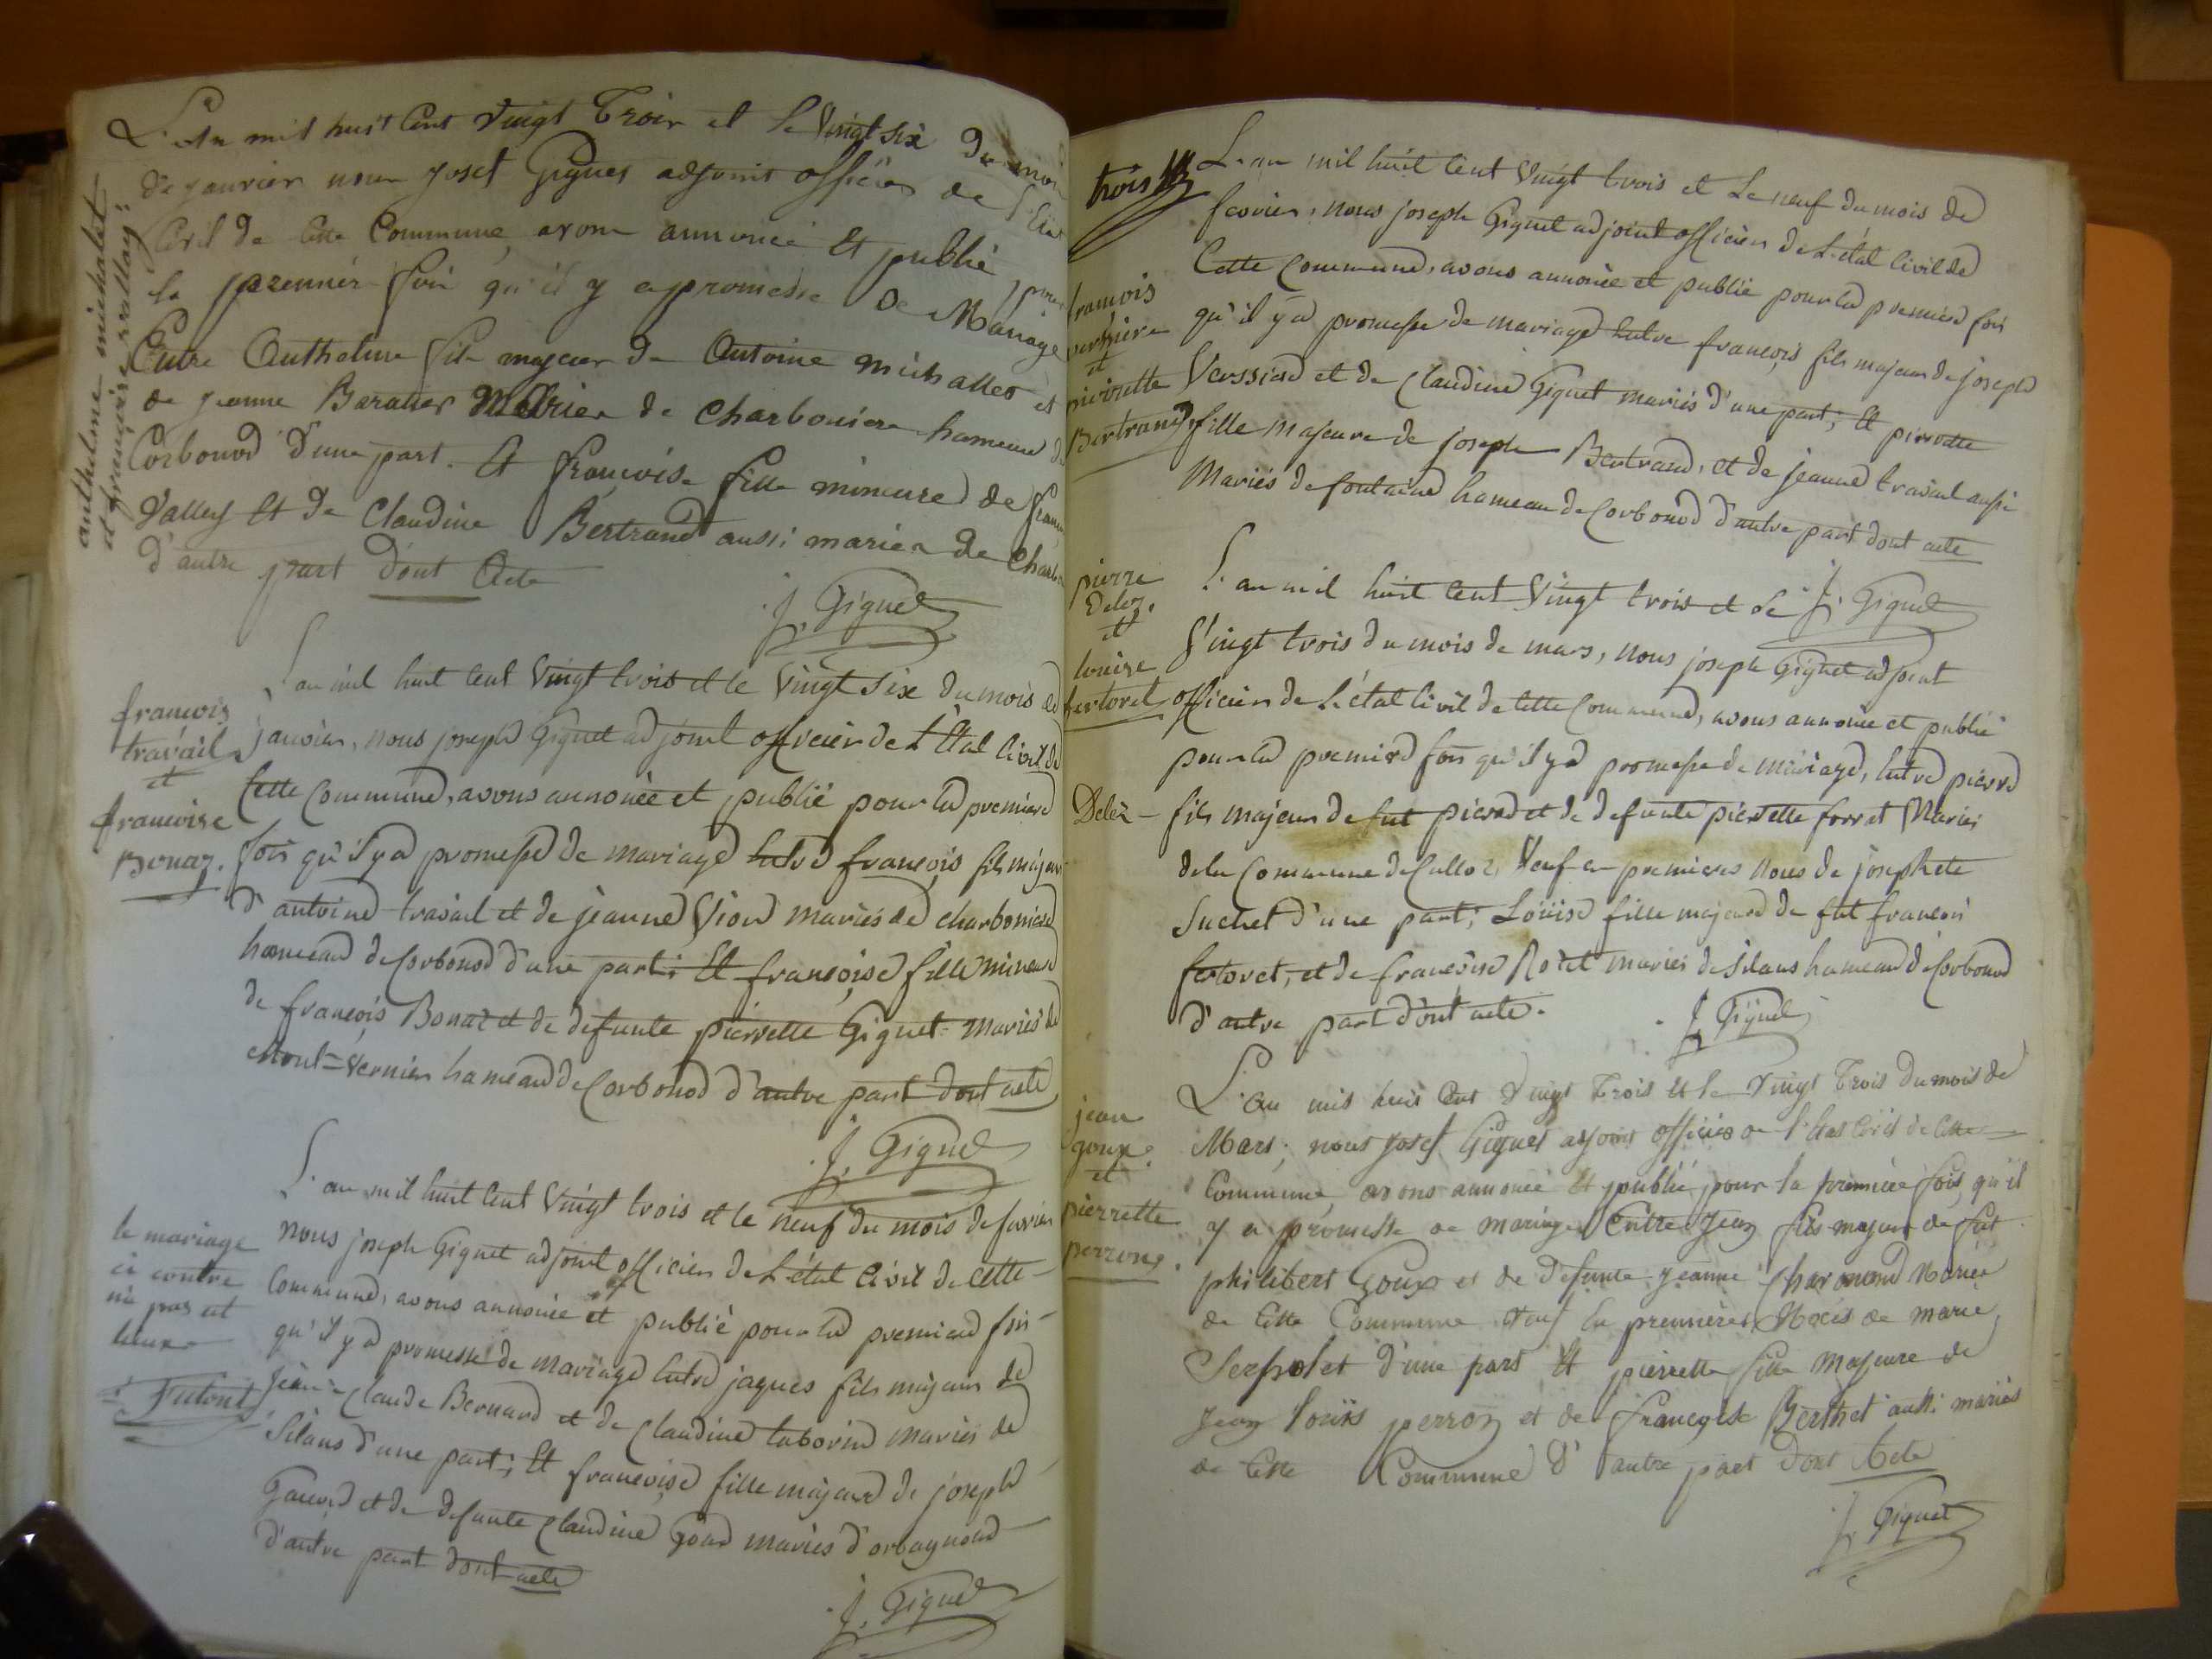 anthelme michalet
et françoise vallay:
L'an mil huit Cent Vingt Trois et le Vingt six du mois
de janvier nous josef Giguet adjoint officier de l'Etat
Civil de Cette Commune, avons annoncé Et publié, pour
la premier fois qu'il y a promesse de Mariage
Entre Anthelme fils majeur de Antoine michallet et
de jeanne Baratier Mariés de Charboniere hameau de
Corbonod d'une part. Et françoise fille mineure de
Vallay Et de Claudine Bertrand aussi mariés de
d'autre part dont Acte
J. Giguet
françois
travail
et
françoise
Bonaz.
L'an mil huit cent vingt trois et le vingt six du mois de
janvier, nous joseph Giguet adjoint officier de L'Etat Civil de
Cette Commune, avons annoncé et publié pour la premiere
fois qu'il y a promesse de mariage Entre françois fils majeur
d'antoine travail et de jeanne Vion mariés de charboniere
hameau de Corbonod d'une part; Et françoise fille mineure
de françois Bonaz et de defunte pierrette Giguet mariés de
Mont=Vernier hameau de Corbonod d'autre part dont acte
J. Giguet
le mariage
ci contre
n'a pas eut
lieux
L'an mil huit cent vingt trois et le neuf du mois de fevrier
nous joseph Giguet adjoint officier de L'état Civil de Cette
Commune, avons annoncé et publié pour la premiere fois
qu'il y a promesse de mariage Entre jaques fils majeur de
jean=Claude Bernard et de Claudine taborin mariés de
Silans d'une part; Et françoise fille majeure de joseph
et de defunte Claudine mariés d'orbagnoud
d'autre part dont acte
J. Giguet
trois
L'an mil huit cent vingt trois et Le neuf du mois de
fevrier, nous joseph Giguet adjoint officier de L'état Civil de
Cette Commune, avons annoncé et publié pour la premiere fois
qu'il y a promesse de mariage Entre françois fils majeur de joseph
Verssiere et de Claudine Giguet mariés d'une part; Et pierrette
fille majeure de joseph Bertrand, et de jeanne travail aussi
Mariés de fontaine hameau de Corbonod d'autre part dont acte
J. Giguet
françois
verssiere
et
pierrette
Bertrand
pierre
Delez.
et
louise
fertoret
L'an mil huit cent vingt trois et Le
Vingt trois du mois de mars, nous joseph Giguet adjoint
officier de L'état Civil de Cette Commune, avons annoncé et publié
pour la premiere fois qu'il y a promesse de mariage, Entre pierre
Delez - fils majeur de fut pierre et de defunte pierrette forrat Mariés
de la Commune de Culloz, Veuf en premieres noces de josephete
Suchet d'une part; Louise fille majeure de fut françois
fertoret, et de françoise Rozet mariés de Silans hameau de Corbonod
d'autre part dont acte.
J. Giguet
jean
goux.
et
pierrette
perron.
L'an mil huit Cent Vingt Trois Et le Vingt Trois du mois de
Mars, nous josef Giguet adjoint officier de l'Etat Civil de Cette
Commune, avons annoncé Et publié pour la première fois, qu'il
y a promesse de mariage Entre Jean fils majeur de fut
philibert Goux et de defunte jeanne Mariés
de Cette Commune Veuf En premières Noces de marie
d'une part Et pierrette fille Majeure de
Jean louis perron et de Françoise Berthet aussi mariés
de Cette Commune d'autre part Dont Acte
J. Giguet